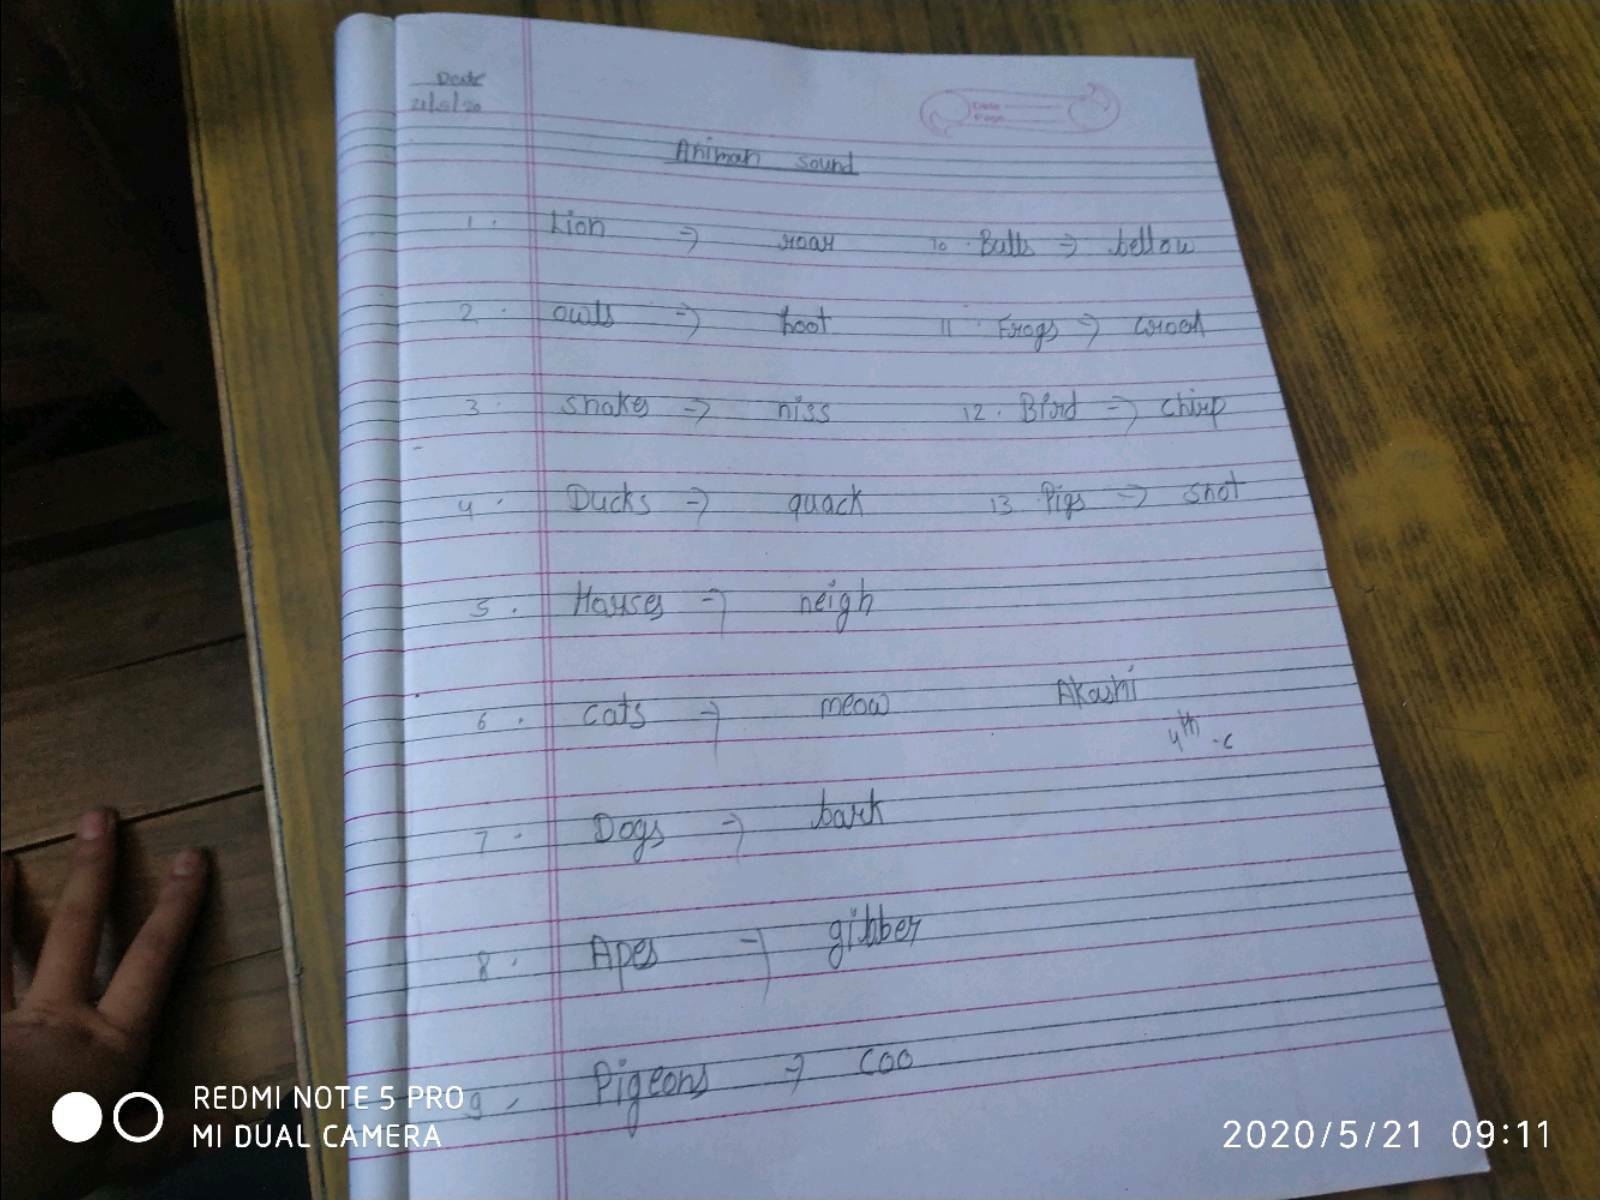 Date
21/5/20
Date
Page
Animah sound
1. Lion → roar
2. owls → hoot
3. snakes → hiss
4. Ducks → quack
5. Hauses → neigh
6. cats → meow
7. Dogs → bark
8. Apes → gibber
9. Pigeons → coo
10. Bulls → bellow
11. Frogs → croak
12. Bird → chirp
13. Pigs → snot
Akashi
4th -c
REDMI NOTE 5 PRO
MI DUAL CAMERA
2020/5/21 09:11